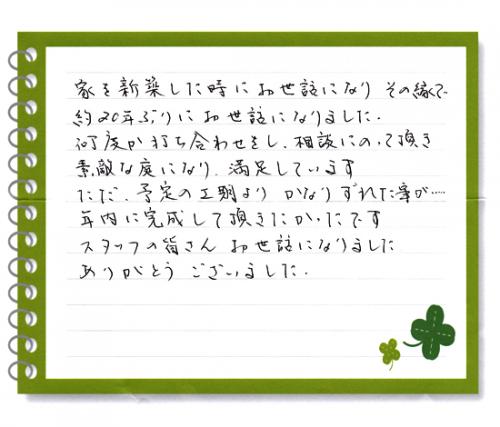 家を新築した時にお世話になり その縁で
約20年ぶりにお世話になりました.
何度か打ち合わせをし、相談にのって頂き
素敵な庭になり、満足しています
ただ、予定の工期より かなりずれた事が……
年内に完成して頂きたかったです
スタッフの皆さん お世話になりました
ありがとう ございました.